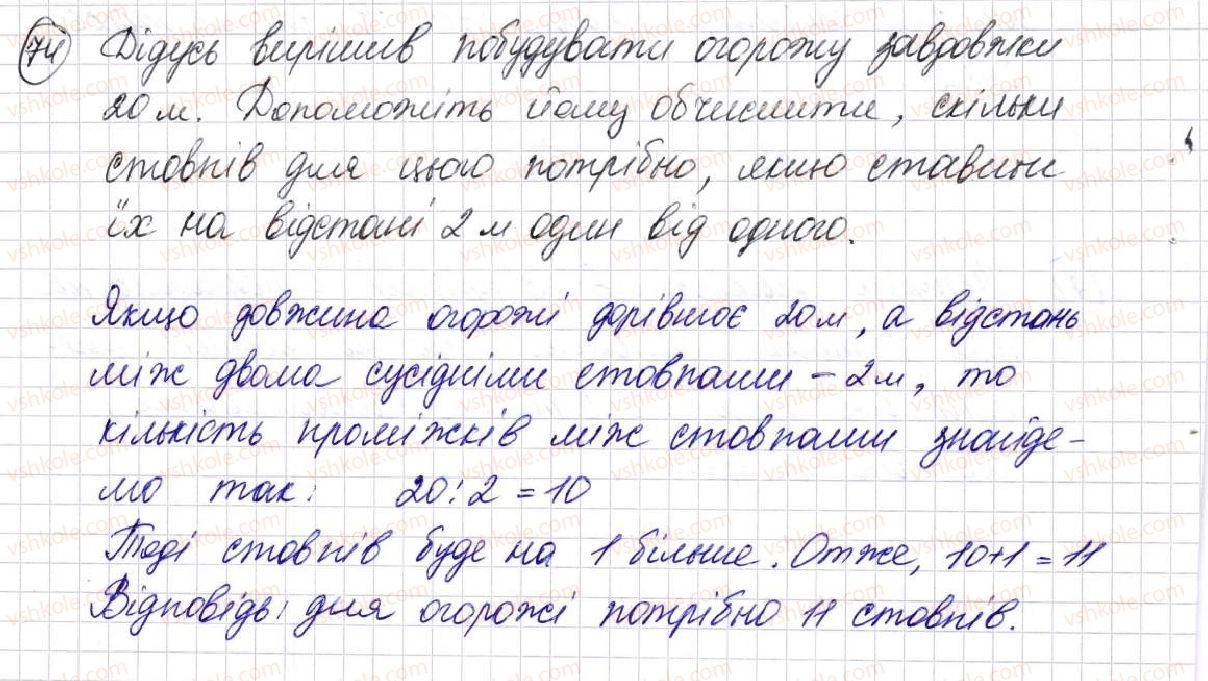 74 Дідусь вирішив побудувати огорожу завдовжки
20 м. Допоможіть йому обчислити, скільки
стовпів для цього потрібно, якщо ставили
їх на відстані 2 м один від одного.
Якщо довжина огорожі дорівнює 20 м, а відстань
між двома сусідніми стовпами – 2 м, то
кількість проміжків між стовпами знайде-
мо так: 20 : 2 = 10
Тоді стовпів буде на 1 більше. Отже, 10+1 = 11
Відповідь: для огорожі потрібно 11 стовпів.
vshkole.com